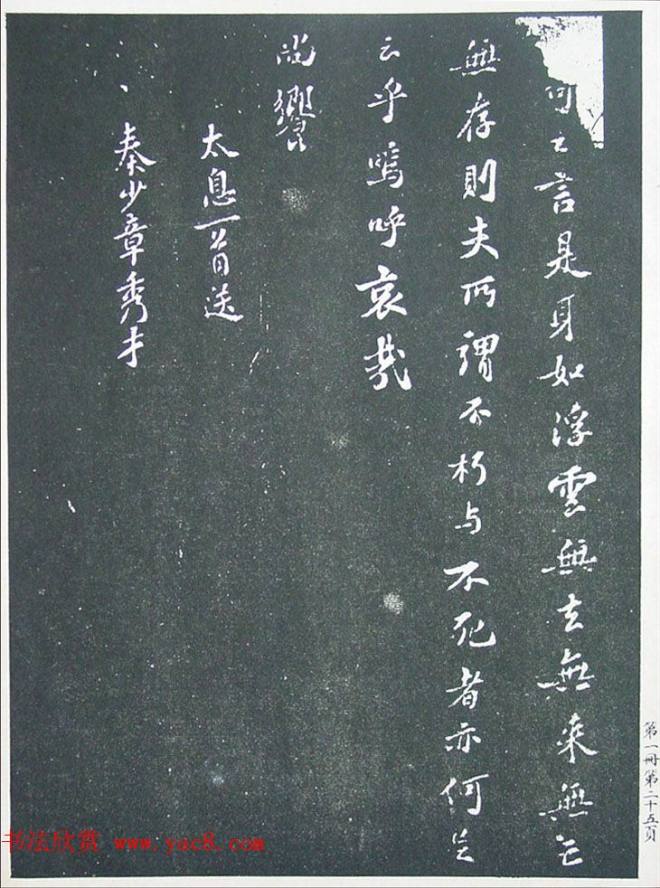 言是身如浮雲無去無來無亡
無存則夫所謂不朽与不死者亦何足
云乎嗚呼哀哉
尚饗
太息一首送
秦少章秀才
第一冊第二十五頁
书法欣赏 www.yac8.com